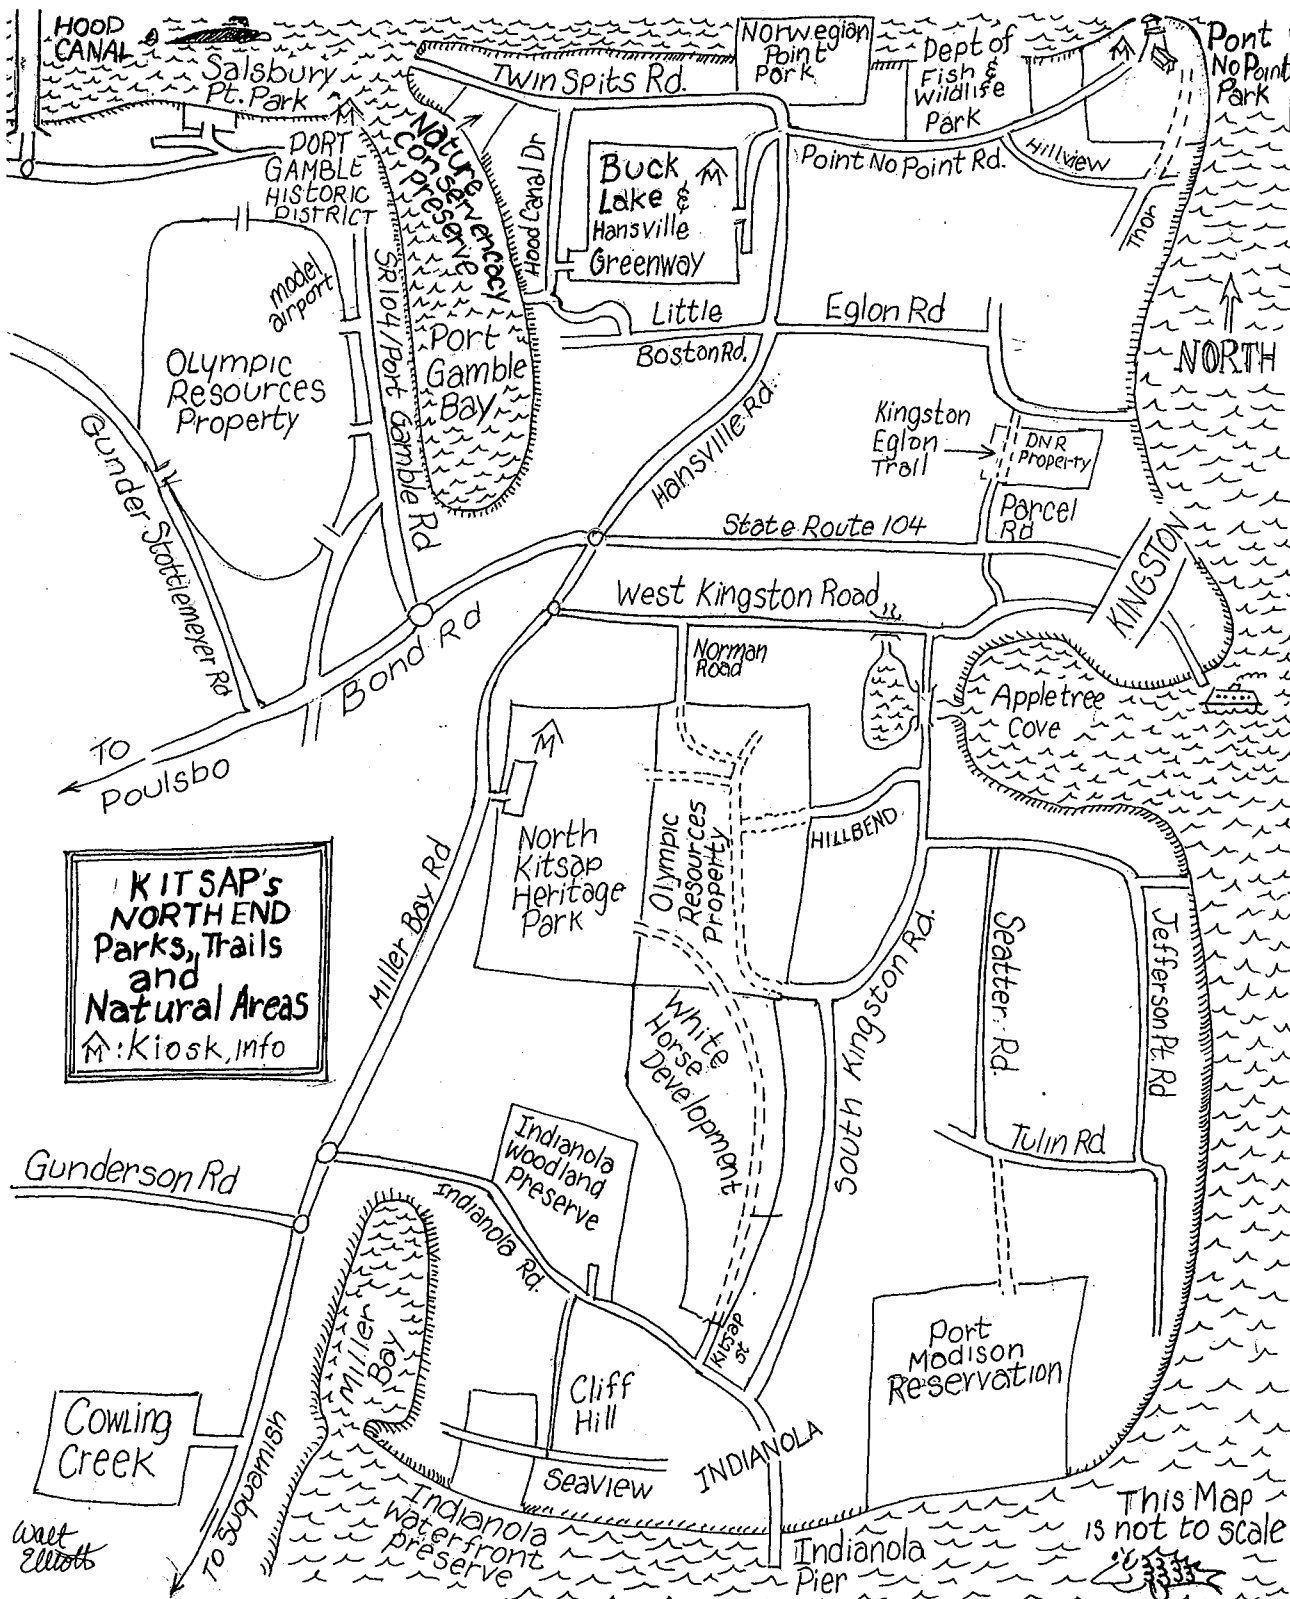 HOOD
CANAL
Salsbury
Pt. Park
Twin Spits Rd.
Norwegian
Point
Park
Dept of
Fish &
Wildlife
Park
Pont
No Point
Park
PORT
GAMBLE
HISTORIC
DISTRICT
Nature
Conservencacy
Preserve
Hood Canal Dr
Buck
Lake &
Hansville
Greenway
Point No Point Rd.
Hillview
Thor
model
airport
SR104/Port Gamble Rd
Port
Gamble
Bay
Little
Boston Rd.
Eglon Rd
NORTH
Olympic
Resources
Property
Gunder Stottlemeyer Rd
Hansville Rd.
Kingston
Eglon
Trail
DNR
Property
Parcel
Rd
State Route 104
KINGSTON
West Kingston Road
Bond Rd
Norman
Road
Appletree
Cove
To
Poulsbo
North
Kitsap
Heritage
Park
Olympic
Resources
Property
HILLBEND
KITSAP's
NORTH END
Parks, Trails
and
Natural Areas
: Kiosk, info
Miller Bay Rd
South Kingston Rd.
Seatter Rd
Jefferson Pt. Rd
White
Horse
Development
Tulin Rd
Gunderson Rd
Indianola
Woodland
Preserve
Indianola Rd.
Miller
Bay
Kitsap
St
Port
Madison
Reservation
Cowling
Creek
Cliff
Hill
Seaview
INDIANOLA
To Suquamish
Indianola
Waterfront
Preserve
Indianola
Pier
This Map
is not to scale
Walt
Elliott